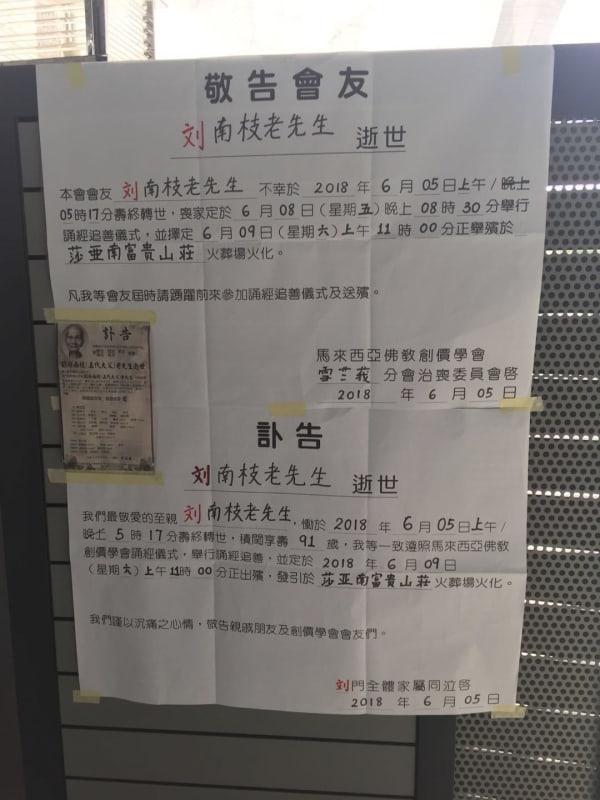 敬告會友
刘南枝老先生 逝世
本會會友 刘南枝老先生 不幸於 2018 年 6 月 05日上午/晚上
05時17分壽終轉世，喪家定於 6 月 08 日(星期五)晚上 08 時 30 分舉行
誦經追善儀式，並擇定 6 月 09 日(星期六)上午 11 時 00 分正舉殯於
莎亞南富貴山莊 火葬場火化。
凡我等會友屆時請踴躍前來參加誦經追善儀式及送殯。
馬來西亞佛教創價學會
雪兰莪 分會治喪委員會啓
2018 年 6 月 05 日
訃告
訃告
刘南枝老先生 逝世
我們最敬愛的至親 刘南枝老先生，慟於 2018 年 6 月 05日上午/
晚上 5 時 17 分壽終轉世，積閏享壽 91 歲，我等一致遵照馬來西亞佛教
創價學會誦經儀式，舉行誦經追善，並定於 2018 年 6 月 09 日
(星期六)上午11時 00 分正出殯，發引於 莎亚南富貴山莊 火葬場火化。
我們謹以沉痛之心情，敬告親戚朋友及創價學會會友們。
刘門全體家屬同泣啓
2018 年 6 月 05 日